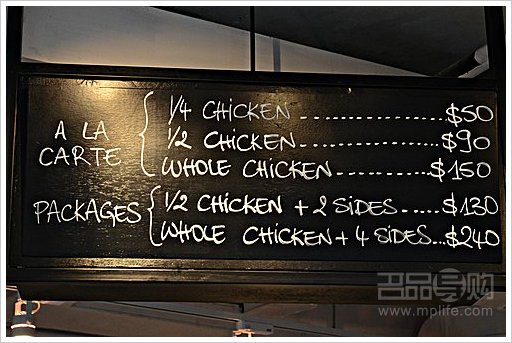 A LA CARTE
1/4 CHICKEN ................ $50
1/2 CHICKEN ................ $90
WHOLE CHICKEN ............ $160
PACKAGES
1/2 CHICKEN + 2 SIDES ..... $130
WHOLE CHICKEN + 4 SIDES... $240
www.mplife.com